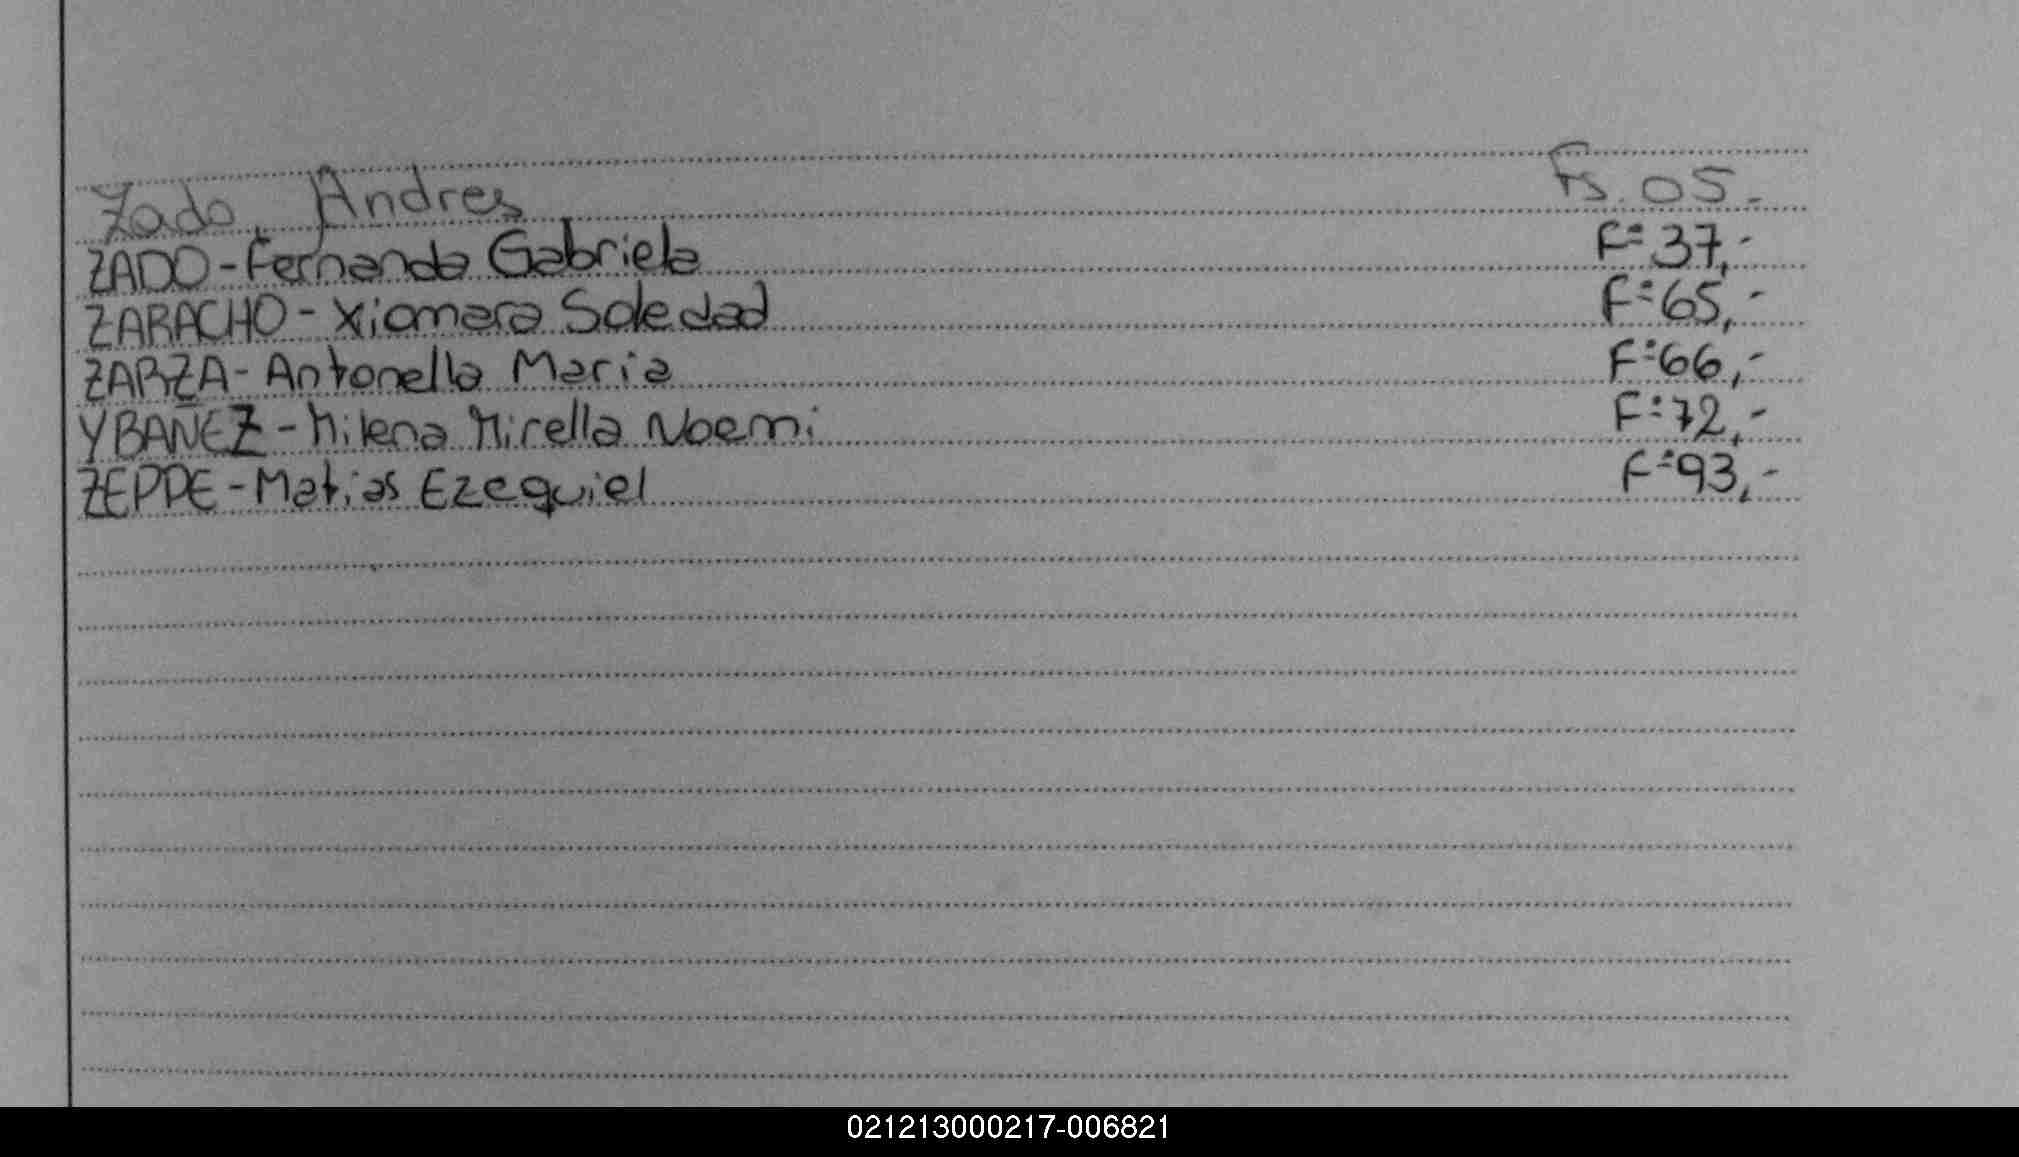 Zado, Andres Fs. 05.-
ZADO - Fernanda Gabriela F=37,-
ZARACHO - Xiomara Soledad F=65,-
ZARZA - Antonella Maria F=66,-
YBAÑEZ - Milena Mirella Noemi F=72,-
ZEPPE - Matias Ezequiel F=93,-
021213000217-006821